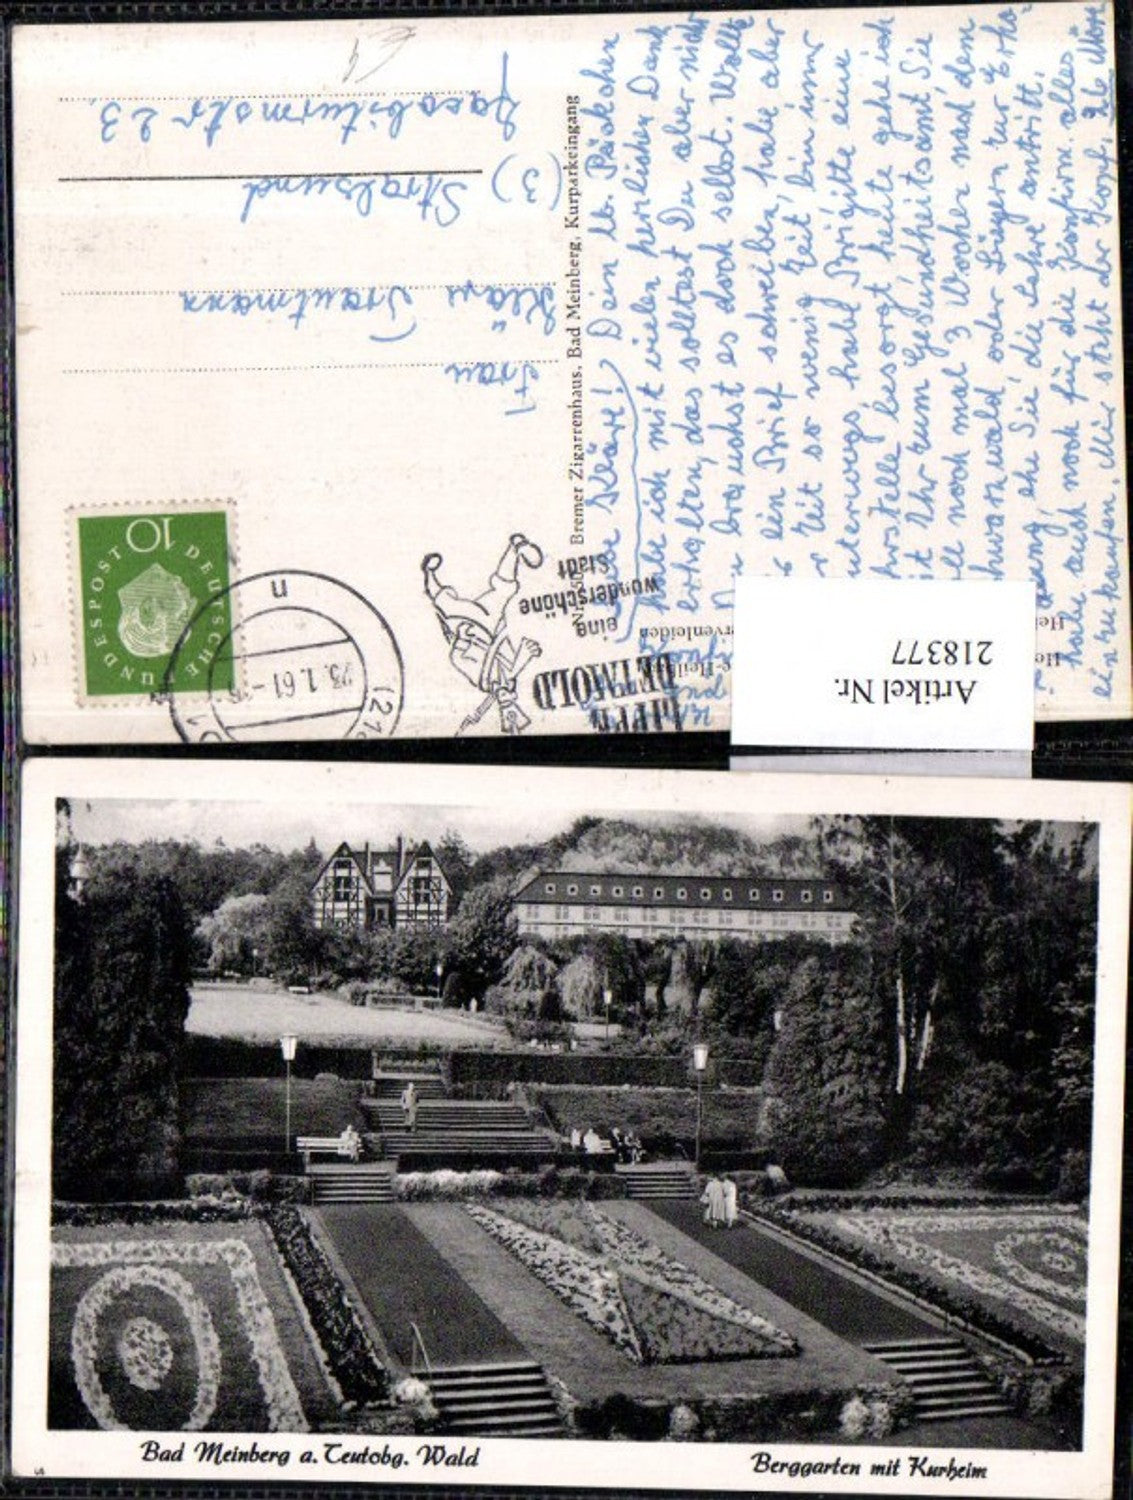 Jacobiturmstr 23.
(3) Stralsund
Kläre Trautmann
Frau
Bremer Zigarrenhaus, Bad Meinberg, Kurparkeingang
DEUTSCHE BUNDESPOST
10
23. 1. 61
eine
wunderschöne
Stadt
DETMOLD
Kläre! Dein lb. Päckchen
habe ich mit vielen herzlichen Dank
erhalten, das solltest Du aber nicht
brauchst es doch selbst. Wollte
ein Brief schreiben, habe aber
Zeit so wenig Zeit, bin immer
unterwegs, habe Brigitte eine
besorgt heute gehe ich
zum Gesundheitsamt Sie
soll noch mal 3 Wochen nach dem
Schwarzwald oder Siegen zur Erho-
lung, ehe Sie die Lehre antritt.
habe auch noch für die Konfirm. alles
einzukaufen. Mir steht der Kopf.
Artikel Nr.
218377
Bad Meinberg a. Teutobg. Wald
Berggarten mit Kurheim